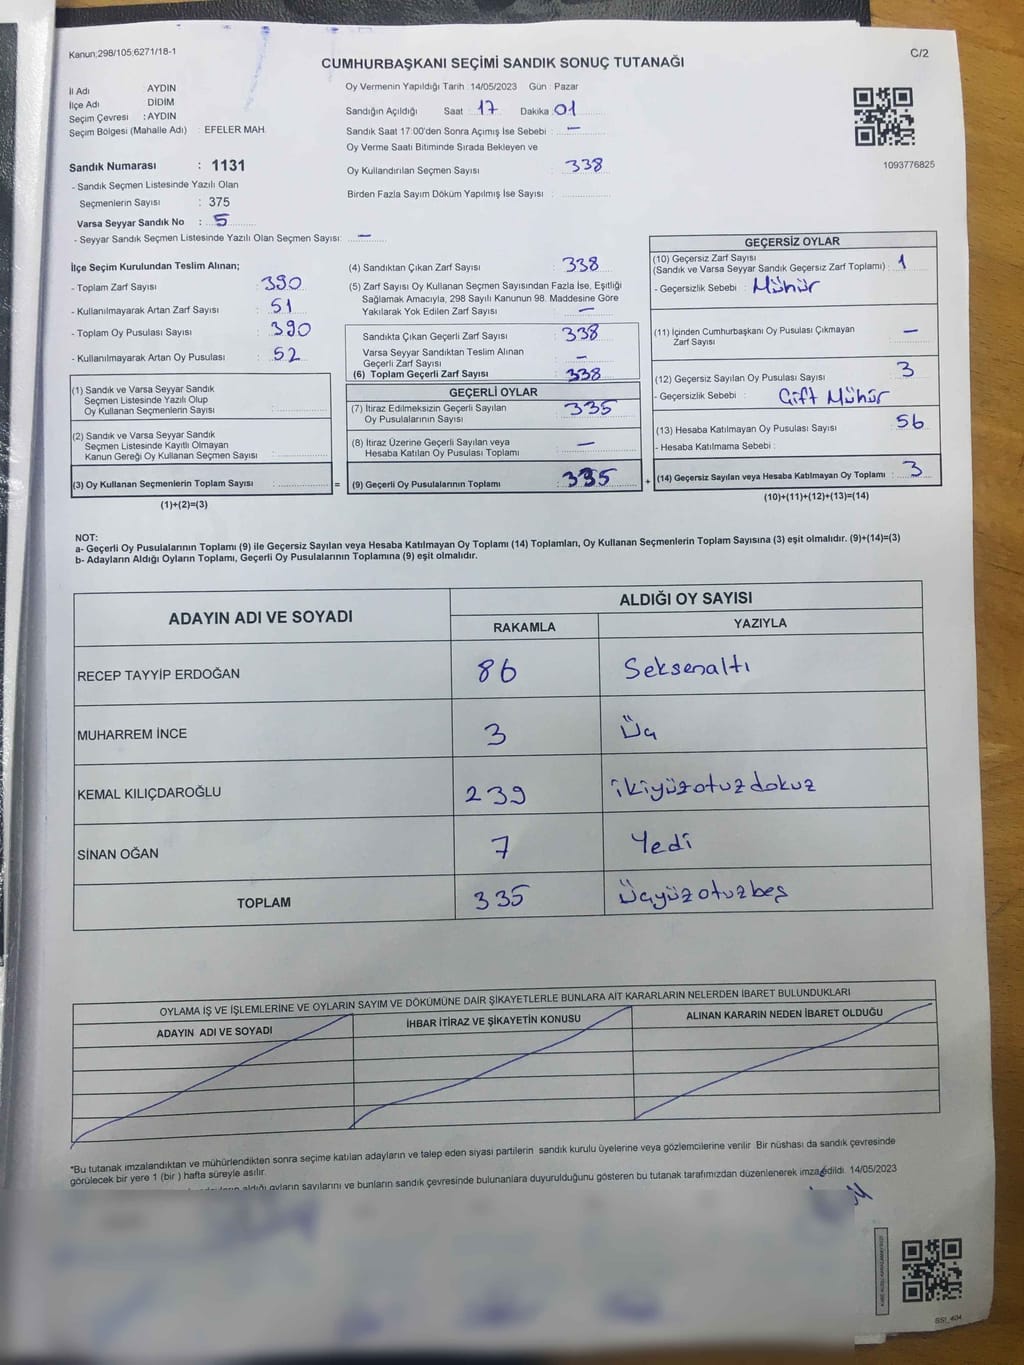 Kanun;298/105,6271/18-1
C/2
CUMHURBAŞKANI SEÇİMİ SANDIK SONUÇ TUTANAĞI
İl Adı AYDIN
İlçe Adı DİDİM
Seçim Çevresi : AYDIN
Seçim Bölgesi (Mahalle Adı) : EFELER MAH.
Oy Vermenin Yapıldığı Tarih : 14/05/2023 Gün : Pazar
Sandığın Açıldığı Saat : 17 Dakika : 01
Sandık Saat 17:00'den Sonra Açımış İse Sebebi : —
Oy Verme Saati Bitiminde Sırada Bekleyen ve
Oy Kullandırılan Seçmen Sayısı : 338
Birden Fazla Sayım Döküm Yapılmış İse Sayısı :
1093776825
Sandık Numarası : 1131
- Sandık Seçmen Listesinde Yazılı Olan
Seçmenlerin Sayısı : 375
Varsa Seyyar Sandık No : 5
- Seyyar Sandık Seçmen Listesinde Yazılı Olan Seçmen Sayısı: —
İlçe Seçim Kurulundan Teslim Alınan;
- Toplam Zarf Sayısı : 390
- Kullanılmayarak Artan Zarf Sayısı : 51
- Toplam Oy Pusulası Sayısı : 390
- Kullanılmayarak Artan Oy Pusulası : 52
(1) Sandık ve Varsa Seyyar Sandık
Seçmen Listesinde Yazılı Olup
Oy Kullanan Seçmenlerin Sayısı :
(2) Sandık ve Varsa Seyyar Sandık
Seçmen Listesinde Kayıtlı Olmayan
Kanun Gereği Oy Kullanan Seçmen Sayısı :
(3) Oy Kullanan Seçmenlerin Toplam Sayısı : =
(1)+(2)=(3)
(4) Sandıktan Çıkan Zarf Sayısı : 338
(5) Zarf Sayısı Oy Kullanan Seçmen Sayısından Fazla İse, Eşitliği
Sağlamak Amacıyla, 298 Sayılı Kanunun 98. Maddesine Göre
Yakılarak Yok Edilen Zarf Sayısı : —
Sandıkta Çıkan Geçerli Zarf Sayısı : 338
Varsa Seyyar Sandıktan Teslim Alınan
Geçerli Zarf Sayısı : —
(6) Toplam Geçerli Zarf Sayısı : 338
GEÇERLİ OYLAR
(7) İtiraz Edilmeksizin Geçerli Sayılan
Oy Pusulalarının Sayısı : 335
(8) İtiraz Üzerine Geçerli Sayılan veya
Hesaba Katılan Oy Pusulası Toplamı : —
(9) Geçerli Oy Pusulalarının Toplamı : 335 +
GEÇERSİZ OYLAR
(10) Geçersiz Zarf Sayısı
(Sandık ve Varsa Seyyar Sandık Geçersiz Zarf Toplamı) : 1
- Geçersizlik Sebebi : Mühür
(11) İçinden Cumhurbaşkanı Oy Pusulası Çıkmayan
Zarf Sayısı : —
(12) Geçersiz Sayılan Oy Pusulası Sayısı : 3
- Geçersizlik Sebebi : Çift Mühür
(13) Hesaba Katılmayan Oy Pusulası Sayısı : 56
- Hesaba Katılmama Sebebi :
(14) Geçersiz Sayılan veya Hesaba Katılmayan Oy Toplamı : 3
(10)+(11)+(12)+(13)=(14)
NOT:
a- Geçerli Oy Pusulalarının Toplamı (9) ile Geçersiz Sayılan veya Hesaba Katılmayan Oy Toplamı (14) Toplamları, Oy Kullanan Seçmenlerin Toplam Sayısına (3) eşit olmalıdır. (9)+(14)=(3)
b- Adayların Aldığı Oyların Toplamı, Geçerli Oy Pusulalarının Toplamına (9) eşit olmalıdır.
ADAYIN ADI VE SOYADI
ALDIĞI OY SAYISI
RAKAMLA YAZIYLA
RECEP TAYYİP ERDOĞAN 86 Seksenaltı
MUHARREM İNCE 3 Üç
KEMAL KILIÇDAROĞLU 239 ikiyüzotuzdokuz
SİNAN OĞAN 7 Yedi
TOPLAM 335 Üçyüzotuzbeş
OYLAMA İŞ VE İŞLEMLERİNE VE OYLARIN SAYIM VE DÖKÜMÜNE DAİR ŞİKAYETLERLE BUNLARA AİT KARARLARIN NELERDEN İBARET BULUNDUKLARI
ADAYIN ADI VE SOYADI İHBAR İTİRAZ VE ŞİKAYETİN KONUSU ALINAN KARARIN NEDEN İBARET OLDUĞU
*Bu tutanak imzalandıktan ve mühürlendikten sonra seçime katılan adayların ve talep eden siyasi partilerin sandık kurulu üyelerine veya gözlemcilerine verilir. Bir nüshası da sandık çevresinde
görülecek bir yere 1 (bir ) hafta süreyle asılır.
aldığı oyların sayılarını ve bunların sandık çevresinde bulunanlara duyurulduğunu gösteren bu tutanak tarafımızdan düzenlenerek imza edildi. 14/05/2023